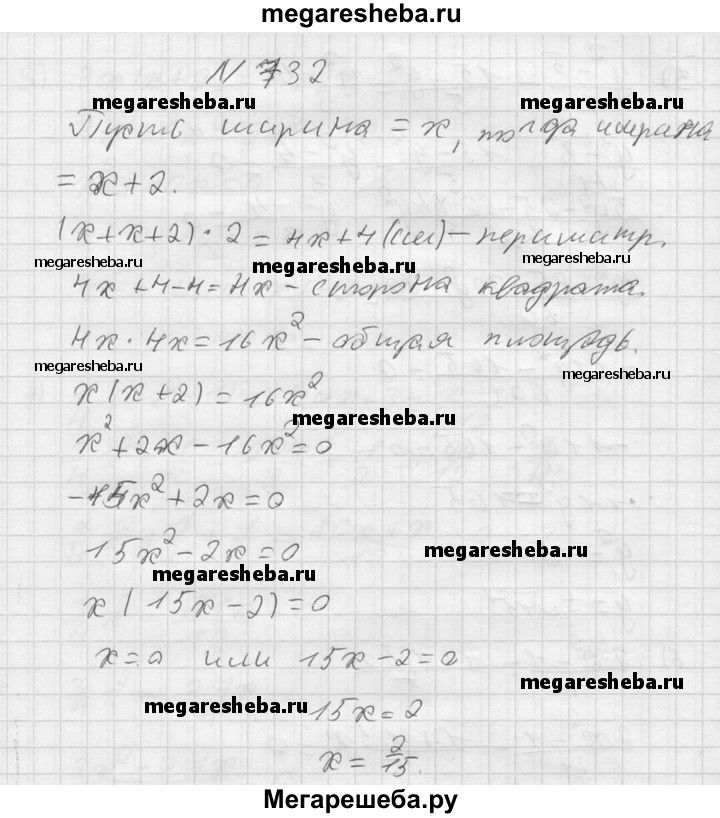 megaresheba.ru
N 732
megaresheba.ru megaresheba.ru
Пусть ширина = x, тогда ширина
= x + 2.
(x+x+2)·2 = 4x+4 (см) – периметр.
megaresheba.ru megaresheba.ru megaresheba.ru
4x+4-4=4x – сторона квадрата.
4x·4x=16x² – общая площадь.
megaresheba.ru megaresheba.ru
x(x+2)=16x²
megaresheba.ru
x²+2x-16x²=0
-15x²+2x=0
15x²-2x=0 megaresheba.ru
megaresheba.ru
x(15x-2)=0
x=0 или 15x-2=0
megaresheba.ru
megaresheba.ru 15x=2
x=2/15.
Мегарешеба.ру